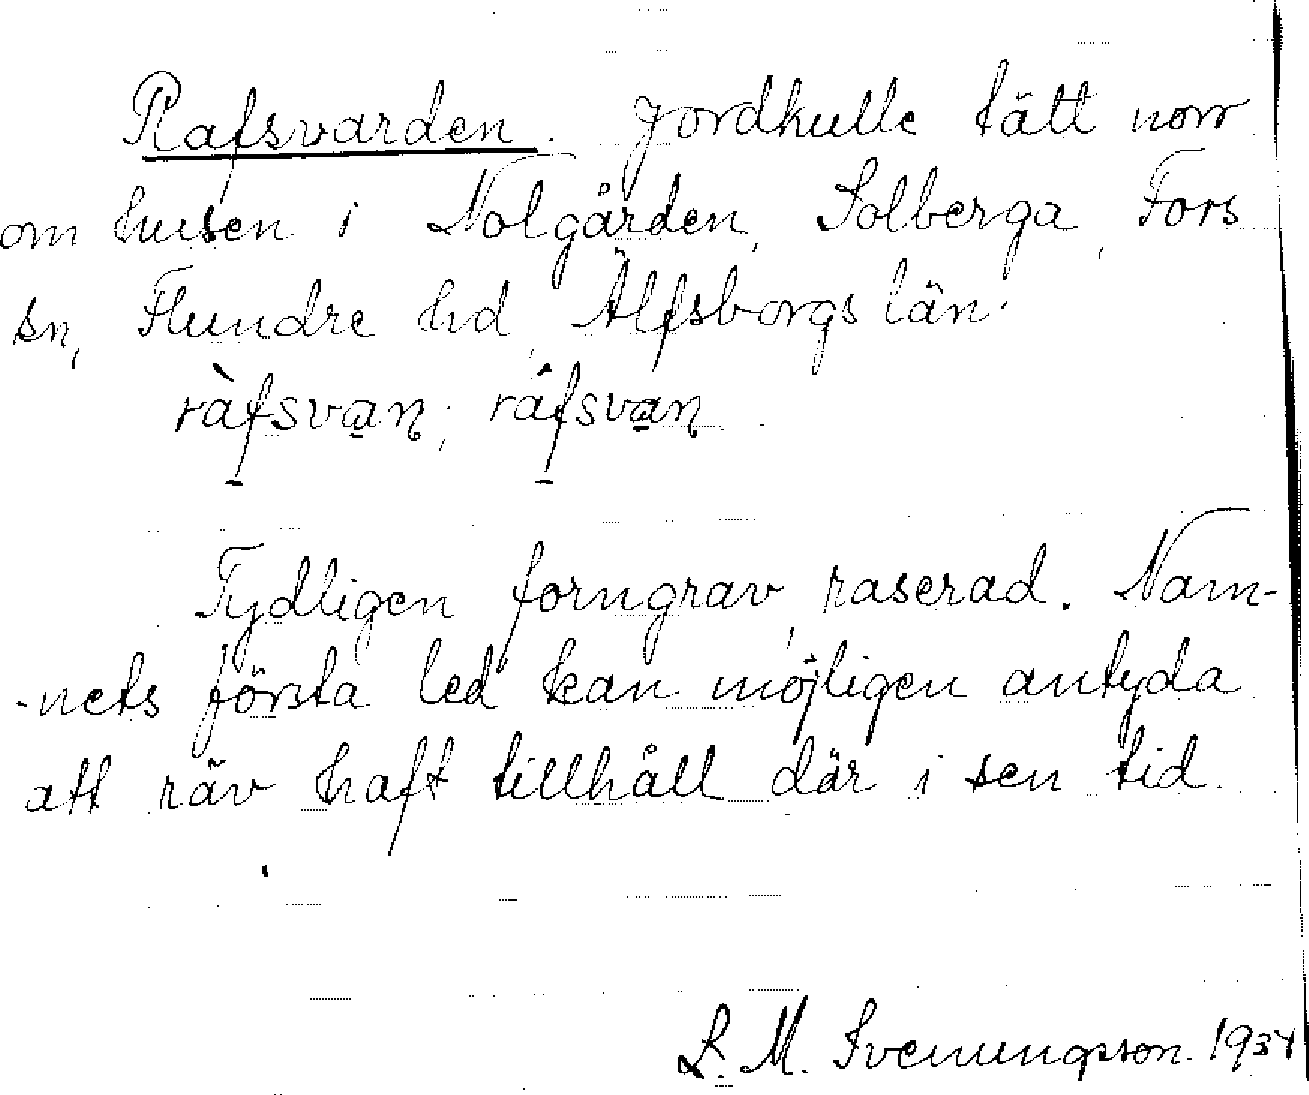 Rafsvarden. Jordkulle tätt norr
om husen i Nolgården, Solberga, Fors
sn, Flundre hd, Älfsborgs län.
ràfsvan; ráfsvan.
Tydligen forngrav, raserad. Nam-
-nets första led kan möjligen antyda
att räv haft tillhåll där i sen tid.
L. M. Svenungsson. 1934